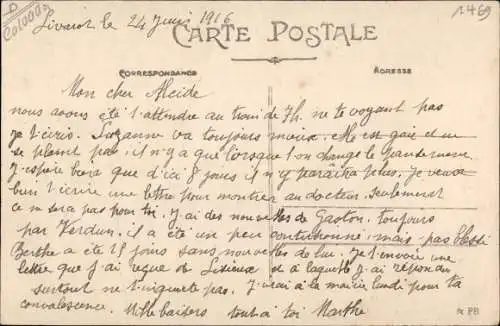 D
C010007
1469
Livarot le 24 Juin 1916
CARTE POSTALE
CORRESPONDANCE
ADRESSE
Mon cher Alcide
nous avons été t'attendre au train de 7h. ne te voyant pas
je t'écris. Suzanne va toujours mieux. Elle est gaie et ne
se plaint pas, il n'y a que lorsque l'on change le pansement
J'espère bien que d'ici 8 jours il n'y paraîtra plus. Je veux
bien t'écrire une lettre pour montrer au docteur. Seulement
ce ne sera pas pour toi. J'ai des nouvelles de Gaston. toujours
par Verdun. il a été un peu contusionné, mais pas blessé
Berthe a été 15 jours sans nouvelles de lui. Je t'envoie une
lettre que j'ai reçue de Lisieux et à laquelle j'ai répondu
surtout ne t'inquiète pas. J'irai à la mairie lundi pour ta
convalescence. Mille baisers tout à toi Marthe
PB